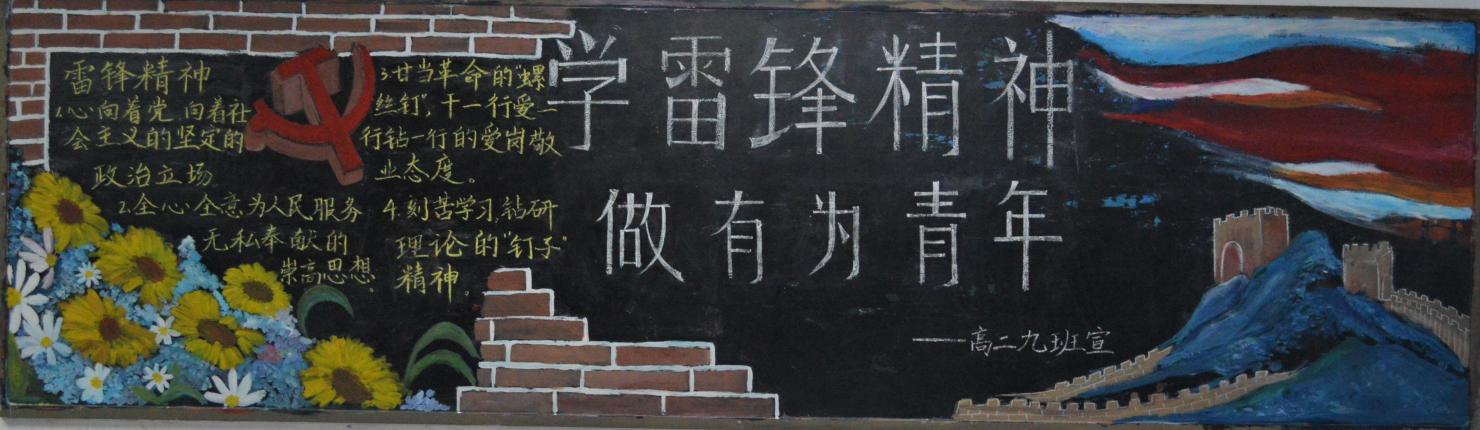 雷锋精神
1.心向着党,向着社
会主义的坚定的
政治立场
2.全心全意为人民服务
无私奉献的
崇高思想。
3.甘当革命的螺
丝钉",干一行爱一
行钻一行的爱岗敬
业态度。
4.刻苦学习,钻研
理论的"钉子"
精神。
学雷锋精神
做有为青年
——高二九班宣